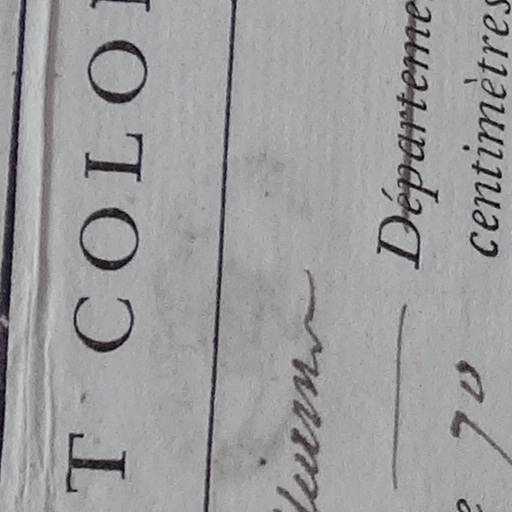 T COLO
Départeme
70 centimètres